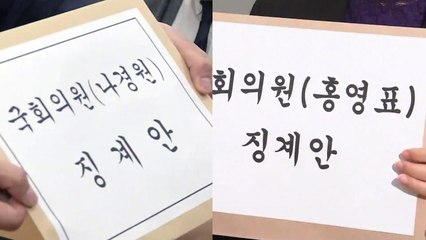 국회의원(나경원)
징계안
회의원(홍영표)
징계안